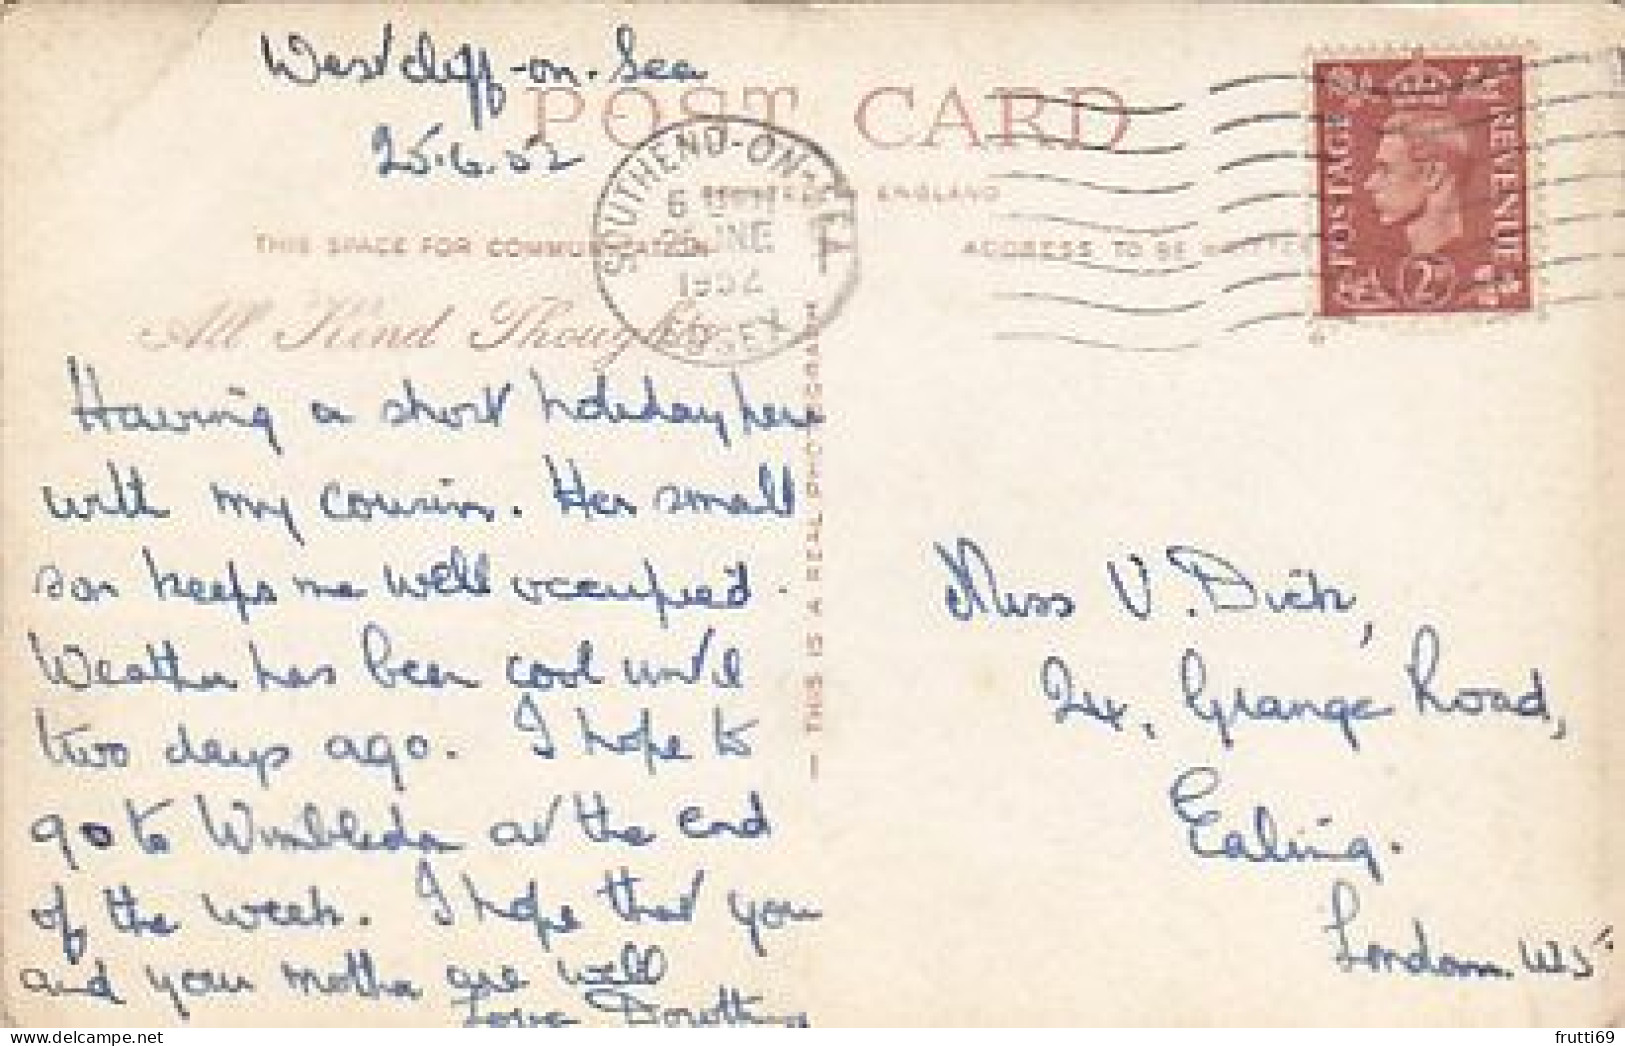 Westcliff-on-Sea
25.6.52
POST CARD
ENGLAND
THIS SPACE FOR COMMUNICATION
ADDRESS TO BE WRITTEN
SOUTHEND-ON-SEA
6
25 JNE
1952
ESSEX
POSTAGE
REVENUE
2D
All Kind Thoughts
Having a short holiday here
with my cousin. Her small
son keeps me well occupied.
Weather has been cool until
two days ago. I hope to
go to Wimbledon at the end
of the week. I hope that you
and your mother are well
Love Dorothy
THIS IS A REAL PHOTOGRAPH
Miss V. Dick,
24, Grange Road,
Ealing.
London W5
frutti69